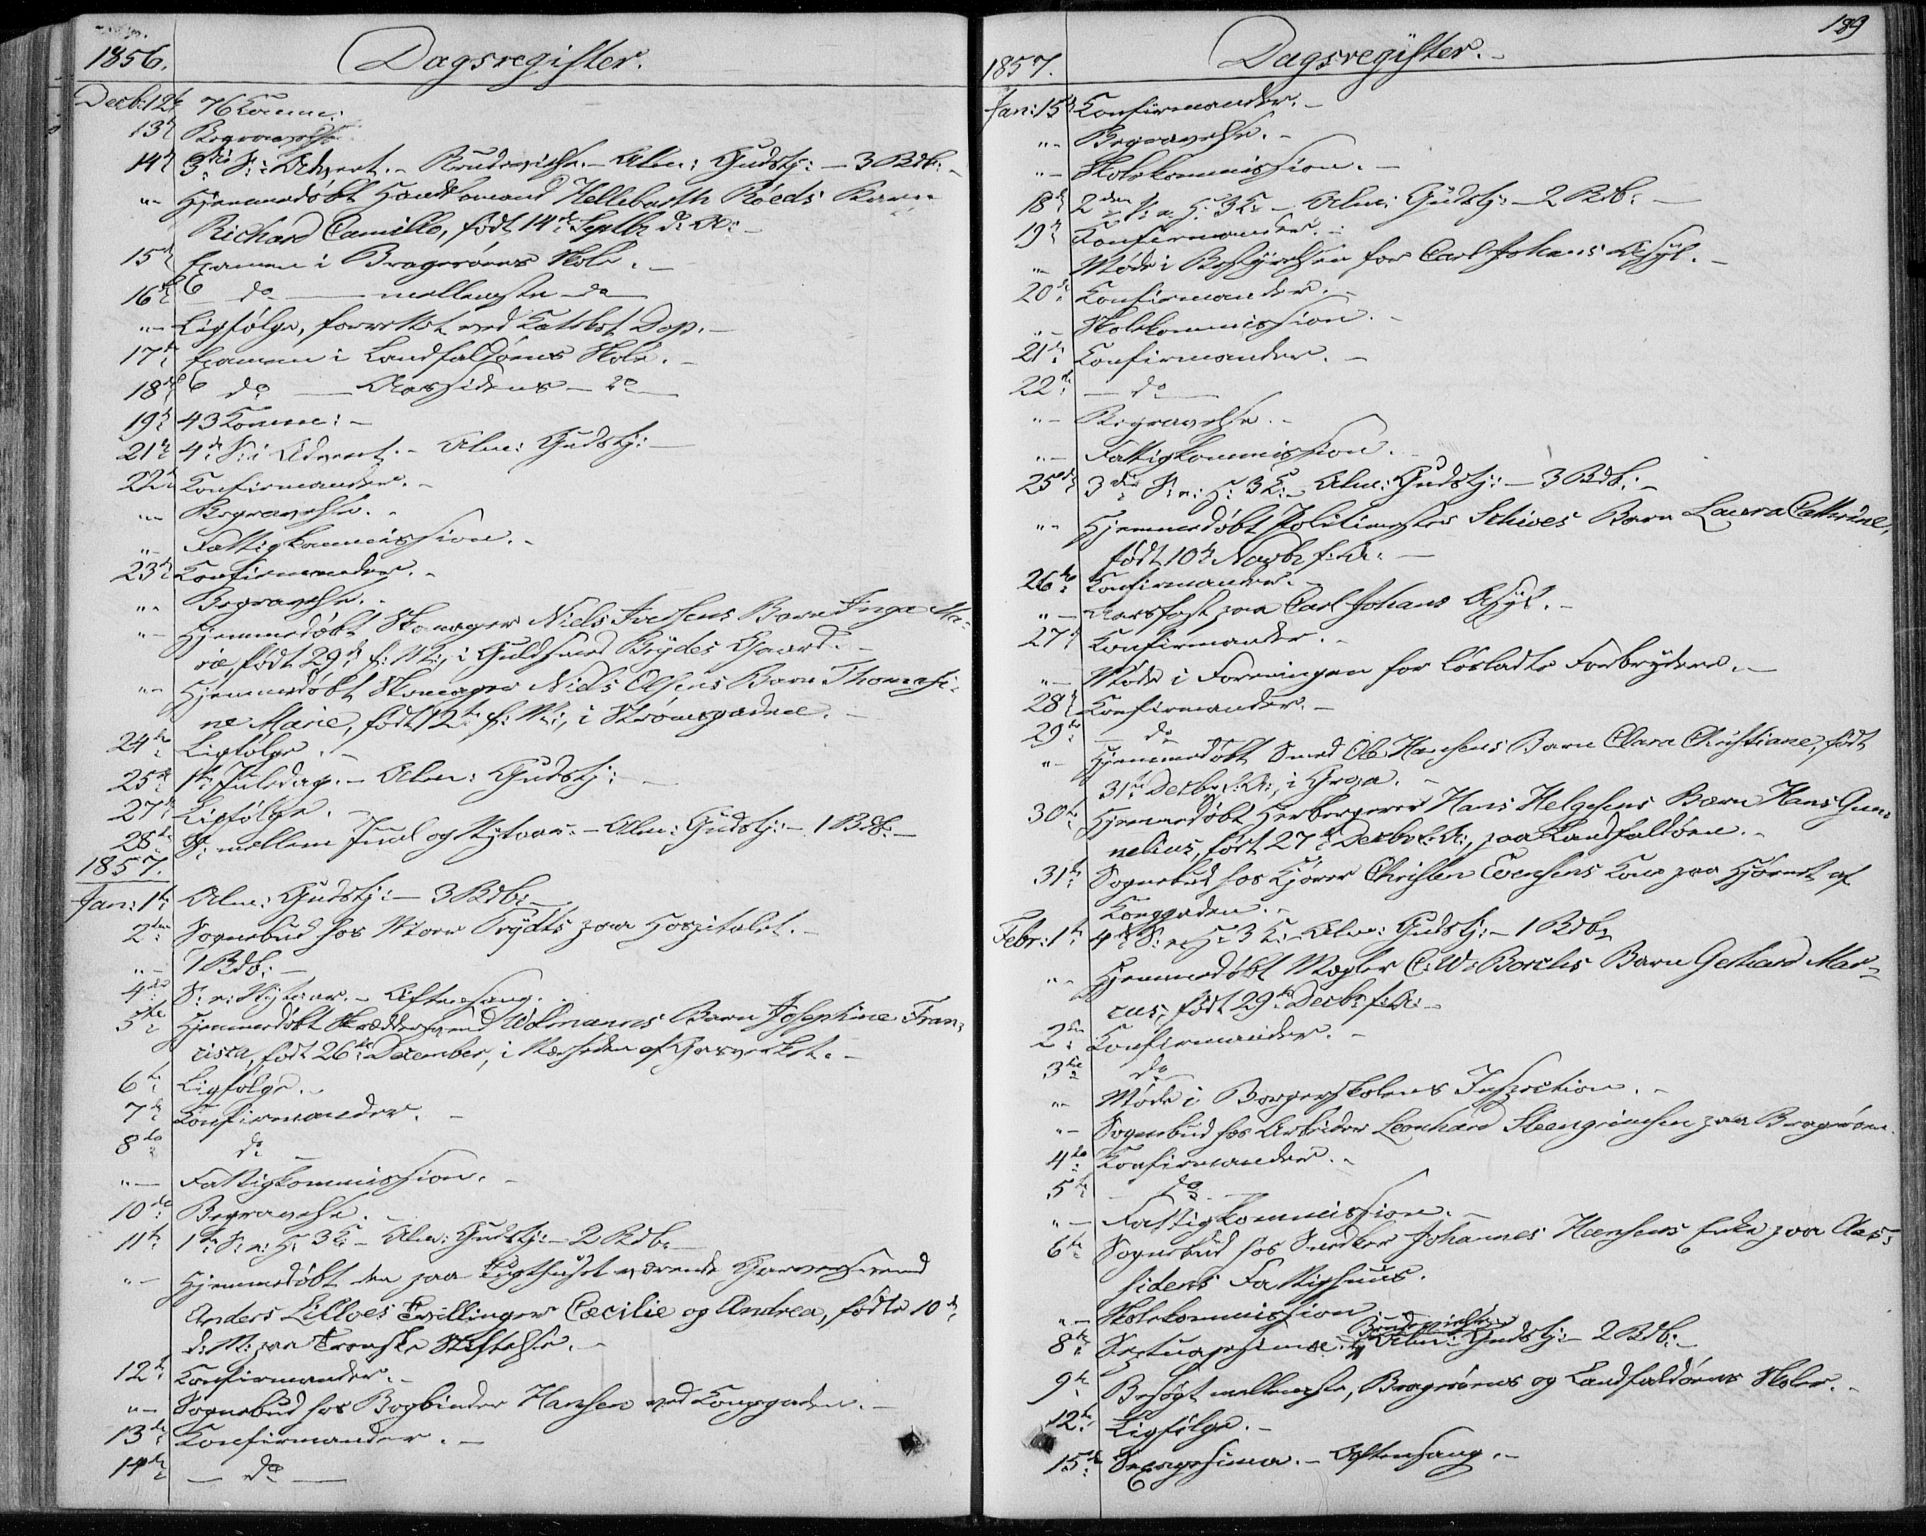 1856. Dagsregister.
Decb: 12te 76 Komm:
13de Begravelse.
14de 3die S: i Advent. - Brudevielse. - Alm: Gudstj: - 3 Bdb: -
"- Hjemmedøbt Handelsmand Hellebarth Röeds Barn
Richard Camillo, født 14de Septbr d: A: -
15de Examen i Bragerøens Skole. -
16de do mellemste do
"- Ligfølge, forrettet ved Dop. -
17de Examen i Landfaldøens Skole. -
18de do Aassidens do
19de 43 Komm: -
21de 4de S: i Advent. - Alm: Gudstj: -
22de Konfirmander. -
"- Begravelse. -
"- Fattigkommission. -
23de Konfirmander. -
"- Begravelse. -
"- Hjemmedøbt Skomager Niels Iversens Barn Inga Ma-
rie, født 29de f: M:, i Guldsmed Brydes Gaard. -
"- Hjemmedøbt Skomager Niels Olsens Barn Thomasi-
ne Marie, født 12te f: M:, i Strømsgaden. -
24de Ligfølge. -
25de 1ste Juledag. - Alm: Gudstj: -
27de Ligfølge. -
28de S: mellem Juul og Nytaar. - Alm: Gudstj: - 1 Bdb: -
1857.
Jan: 1ste Alm: Gudstj: - 3 Bdb: -
2den Sognebud hos Trydts paa Hospitalet. -
"- 1 Bdb: -
4de S: e: Nytaar. - Aftensang. -
5te Hjemmedøbt Skræddersvend Wolmanns Barn Josephine Fran-
cisca, født 26de December, i Nærheden af Gasværket. -
6te Ligfølge. -
7de Konfirmander. -
8de do
"- Fattigkommission. -
10de Begravelse. -
11te 1ste S: e: H: 3 K: - Alm: Gudstj: - 2 Bdb: -
"- Hjemmedøbt den paa Tugthuset værende Garversvend
Anders Lilloes Tvillinger Cæcilie og Andrea, fødte 10de
d: M: paa Tronske Stiftelse. -
12te Konfirmander. -
"- Sognebud hos Bogbinder Hansen ved Konggaden. -
13de Konfirmander. -
14de do
1857. Dagsregister. - 189
Jan: 15de Konfirmander. -
"- Begravelse. -
"- Skolekommission. -
18de 2den S: e: H: 3 K: - Alm: Gudstj: - 2 Bdb: -
19de Konfirmander. -
"- Møde i Bestyrelsen for Carl Johans Asyl. -
20de Konfirmander. -
"- Skolekommission. -
21de Konfirmander. -
22de do
"- Begravelse. -
"- Fattigkommission. -
25de 3die S: e: H: 3 K: - Alm: Gudstj: - 3 Bdb: -
"- Hjemmedøbt Politimester Schives Barn Laura Cathrine,
født 10de Novbr f: A: -
26de Konfirmander. -
"- Aarsfest paa Carl Johans Asyl. -
27de Konfirmander. -
"- Møde i Foreningen for løsladte Forbrydere. -
28de Konfirmander. -
29de do
"- Hjemmedøbt Smed Ole Hansens Barn Clara Christiane, født
31te Decbr f: A:, i Grga. -
30te Hjemmedøbt Herbergerer Hans Helgesens Barn Hans Gun-
nelius, født 27de Decbr f: A:, paa Landfaldøen. -
31te Sognebud hos Kjører Christen Evensens Kone paa Hjørnet af
Konggaden. -
Febr: 1ste 4de S: e: H: 3 K: - Alm: Gudstj: - 1 Bdb:
"- Hjemmedøbt Mægler C: W: Borchs Barn Gerhard Mar-
cus, født 29de Decbr f: A: -
2den Konfirmander. -
3die do
"- Møde i Borgerskolens Inspection. -
"- Sognebud hos Arbeider Leonhard Steengrimsen paa Bragerøen.
4de Konfirmander. -
5te do
"- Fattigkommission. -
6te Sognebud hos Snedker Johannes Hansens Enke paa Aas-
sidens Fattighuus.
"- Skolekommission
8de Septuagesima. Brudevielse. Alm: Gudstj: - 2 Bdb: -
9de Besøgt mellemste, Bragerøens og Landfaldøens Skoler. -
12te Ligfølge. -
15de Sexagesima. - Aftensang. -